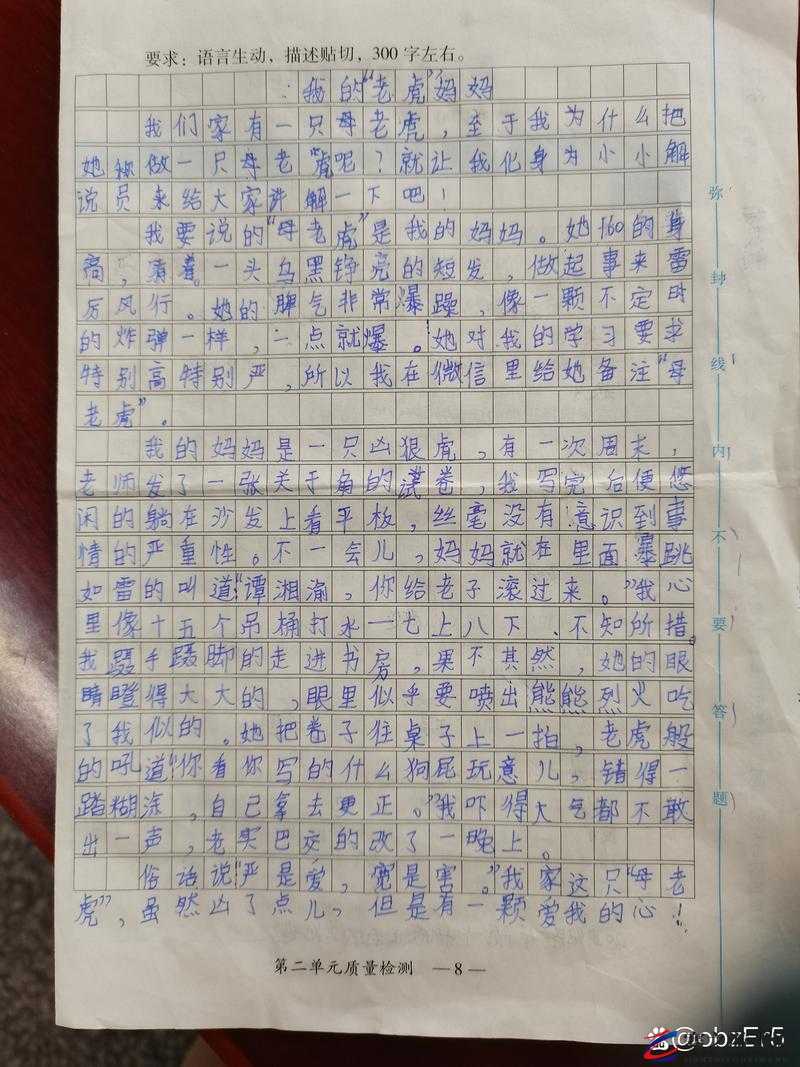 要求：语言生动，描述贴切，300字左右。
我的“老虎”妈妈
我们家有一只母老虎，至于我为什么把
她称做一只母老“虎呢？就让我化身为小小解
说员来给大家讲解一下吧！
我要说的“母老虎”是我的妈妈。她160的身
高，一头乌黑铮亮的短发，做起事来雷
厉风行。她的脾气非常爆躁，像一颗不定时
的炸弹一样，一点就爆。她对我的学习要求
特别高特别严，所以我在微信里给她备注“母
老虎”。
我的妈妈是一只凶狠虎，有一次周末，
老师发了一张关于角的试卷，我写完后便悠
闲的躺在沙发上看平板，丝毫没有意识到事
情的严重性。不一会儿，妈妈就在里面暴跳
如雷的叫道：“谭湘渝，你给老子滚过来。”我心
里像十五个吊桶打水一七上八下、不知所措。
我蹑手蹑脚的走进书房，果不其然，她的眼
睛瞪得大大的，眼里似乎要喷出熊熊烈火吃
了我似的。她把卷子往桌子上一拍，老虎般
的吼道：“你看你写的什么狗屁玩意儿，错得一
踏糊涂，自己拿去更正。”我吓得大气都不敢
出一声，老实巴交的改了一晚上。
俗话说：“严是爱，宽是害。”我家这只“母老
虎”，虽然凶了点儿，但是有一颗爱我的心！
第二单元质量检测 —8—
弥
封
线
内
不
要
答
题
@obzEr5